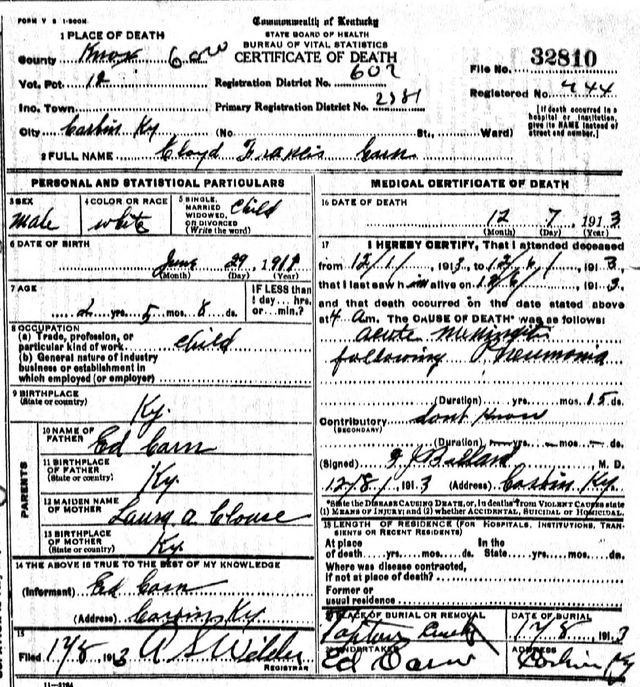 FORM V S 1-500M
Commonwealth of Kentucky
STATE BOARD OF HEALTH
BUREAU OF VITAL STATISTICS
CERTIFICATE OF DEATH
1 PLACE OF DEATH
County Knox 600
Vot. Pct 12
Inc. Town
City Corbin Ky (No. St., Ward)
Registration District No. 602
Primary Registration District No. 2381
File No. 32810
Registered No. 444
[If death occurred in a hospital or institution, give its NAME instead of street and number.]
2 FULL NAME Cloyd Francis Corn
PERSONAL AND STATISTICAL PARTICULARS
3 SEX male
4 COLOR OR RACE white
5 SINGLE, MARRIED WIDOWED, OR DIVORCED (Write the word) Child
6 DATE OF BIRTH
June 29 1911
(Month) (Day) (Year)
7 AGE
2 yrs. 5 mos. 8 ds.
IF LESS than 1 day... hrs. or... min.?
8 OCCUPATION
(a) Trade, profession, or particular kind of work child
(b) General nature of industry
business or establishment in
which employed (or employer)
9 BIRTHPLACE
(State or country) Ky.
PARENTS
10 NAME OF FATHER Ed Corn
11 BIRTHPLACE OF FATHER (State or country) Ky.
12 MAIDEN NAME OF MOTHER Laura A. Clouse
13 BIRTHPLACE OF MOTHER (State or country) Ky
14 THE ABOVE IS TRUE TO THE BEST OF MY KNOWLEDGE
(Informant) Ed Corn
(Address) Corbin Ky
15
Filed 12/8 1913 A S Wilder
REGISTRAR
11-3184
MEDICAL CERTIFICATE OF DEATH
16 DATE OF DEATH
12 7, 1913
(Month) (Day) (Year)
17 I HEREBY CERTIFY, That I attended deceased
from 12/1/, 1913, to 12/6/, 1913,
that I last saw him alive on 12/6/, 1913
and that death occurred on the date stated above
at 4 Am. The CAUSE OF DEATH* was as follows:
acute Meningitis
following Pneumonia
(Duration) yrs. mos. 15 ds.
Contributory dont know
(SECONDARY)
(Duration) yrs. mos. ds.
(Signed) Ballard M. D.
12/8/, 1913 (Address) Corbin Ky.
*State the DISEASE CAUSING DEATH, or, in deaths from VIOLENT CAUSES state
(1) MEANS OF INJURY; and (2) whether ACCIDENTAL, SUICIDAL or HOMICIDAL.
18 LENGTH OF RESIDENCE (FOR HOSPITALS, INSTITUTIONS, TRANSIENTS OR RECENT RESIDENTS)
At place of death yrs. mos. ds. In the State yrs. mos. ds.
Where was disease contracted,
if not at place of death?
Former or
usual residence
PLACE OF BURIAL OR REMOVAL
DATE OF BURIAL
Creek 12/8, 1913
20 UNDERTAKER
ADDRESS
Ed Corbin Ky